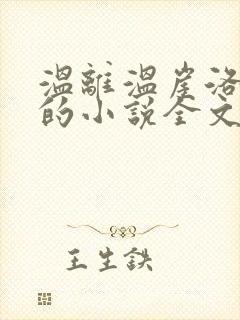 溫離溫崖洛
的小說全文
王生鉄